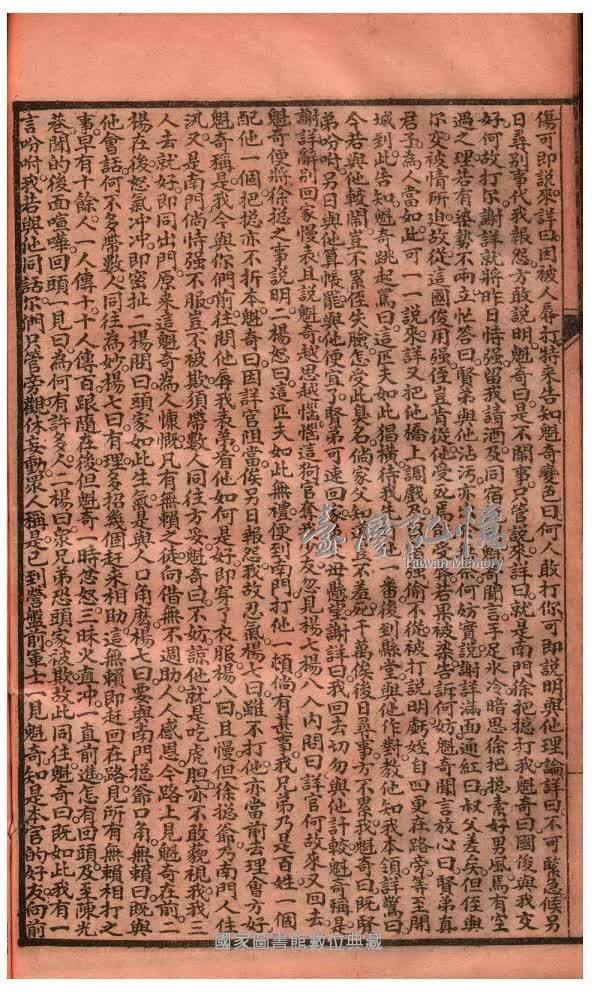 傷可即說來詳曰因被人辱打特來告知魁奇變色曰何人敢打你可即說明與他理論詳曰不可緊急候另
日尋別事代我報怨方敢說明魁奇曰是不閙事只管說來詳曰就是南門徐把摠打我魁奇曰國俊與我交
好何故打尔謝詳就將昨日恃強留我請酒及同宿魁奇聞言手足氷冷暗思徐把摠素好男風焉有空
過之理若有姿勢不兩立忙答曰賢弟與他沾汚亦何妨實說謝詳滿面通紅曰叔父差矣但侄與
尔交被情所迫故從這國俊用強侄豈肯從他受死焉受若果被染告訴何妨魁奇聞言放心曰賢弟真
君子為人當如此可一一說來詳又把他橋上調戲及強偷不從被打說明虧姪自四更在路旁等至開
城到此告知魁奇跳起罵曰這匹夫如此猖獗待我一番後到縣堂與他作對教他知我本領詳驚曰
今若與他較閙豈不累侄失臉怎受此臭名倘家父知豈不羞死千萬俟後日尋事方不累我魁奇曰既賢
弟吩咐另日與他算帳罷與他便宜了賢弟可速回家母懸望謝詳曰我回去切勿與他計較魁奇稱是
謝詳辭別回家慢表且說魁奇越思越惱惱這狗官奪我好友忽見楊七楊八入內問曰詳官何故來又回去
魁奇便將徐摠之事說明二楊怒曰這匹夫如此無禮便到南門打他一頓倘有甚事我兄弟乃是百姓一個
配他一個把摠亦不折本魁奇曰因詳官阻當俟另日報怨我故忍氣楊七曰雖不打他亦當前去理會方好
魁奇稱是我今與你們前往問他辱我表弟看他如何是好即穿了衣服楊八曰且慢但徐摠爺乃南門人住
況又是南門倘恃强不服豈不被欺須帶數人同往方妥魁奇曰不妨諒他就是吃虎胆亦不敢藐視我我三
人去就好即同出門原來這魁奇為人慷慨凡有無賴之徒向借無不週助人人感恩今路上見魁奇在前二
楊在後怒氣冲冲即密扯二楊問曰頭家如此生氣是與人口角麽楊七曰要與南門摠爺口角無賴曰既與
他會話何不多帶數人同往為妙楊七曰有理多招幾個赶來相助這無賴即赶回在路見所有無賴相打之
事早有十餘人一人傳十十人傳百跟隨在後但魁奇一時忿怒三昧火直冲一直前進怎有回頭及至陳光
巷聞的後面喧嘩回頭一見曰為何有許多人二楊曰眾兄弟恐頭家被欺故此同往魁奇曰既如此我有一
言吩咐我若與他同話尔們只管旁觀休妄動眾人稱是已到營盤前軍士一見魁奇知是本官的好友向前
臺灣記憶
Taiwan Memory
國家圖書館數位典藏